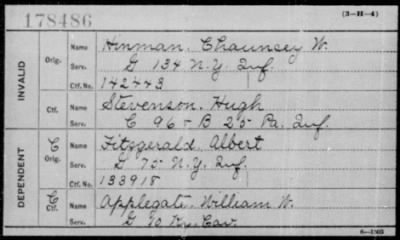 178486
(3-H-4)
INVALID
Orig.
Name Hinman, Chauncey W.
Serv. G 134 N.Y. Inf.
Ctf. No. 142443
Ctf.
Name Stevenson, Hugh
Serv. C 96 - B 25 Pa. Inf.
DEPENDENT
C Orig.
Name Fitzgerald, Albert
Serv. G 75 N.Y. Inf.
Ctf. No. 133918
C Ctf.
Name Applegate, William W.
Serv. G 10 Ky. Cav.